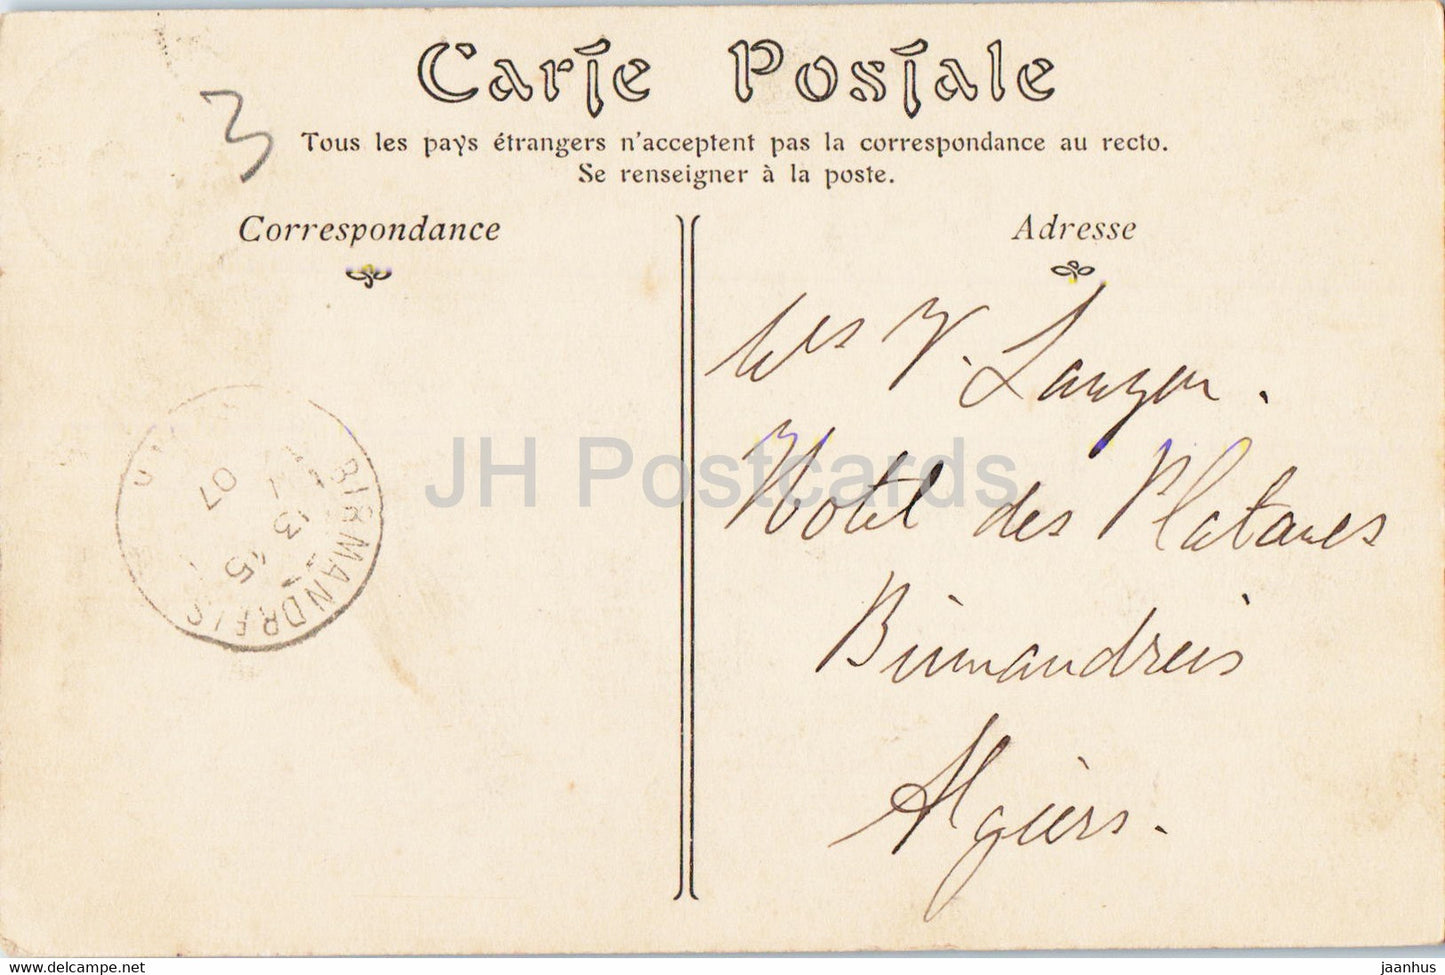 Carte Postale
3
Tous les pays étrangers n'acceptent pas la correspondance au recto.
Se renseigner à la poste.
Correspondance
Adresse
V.
Hotel des Platanes
Birmandreis
Algiers.
BIRMANDREIS
13
15
07
JH Postcards
www.delcampe.net
jaanhus